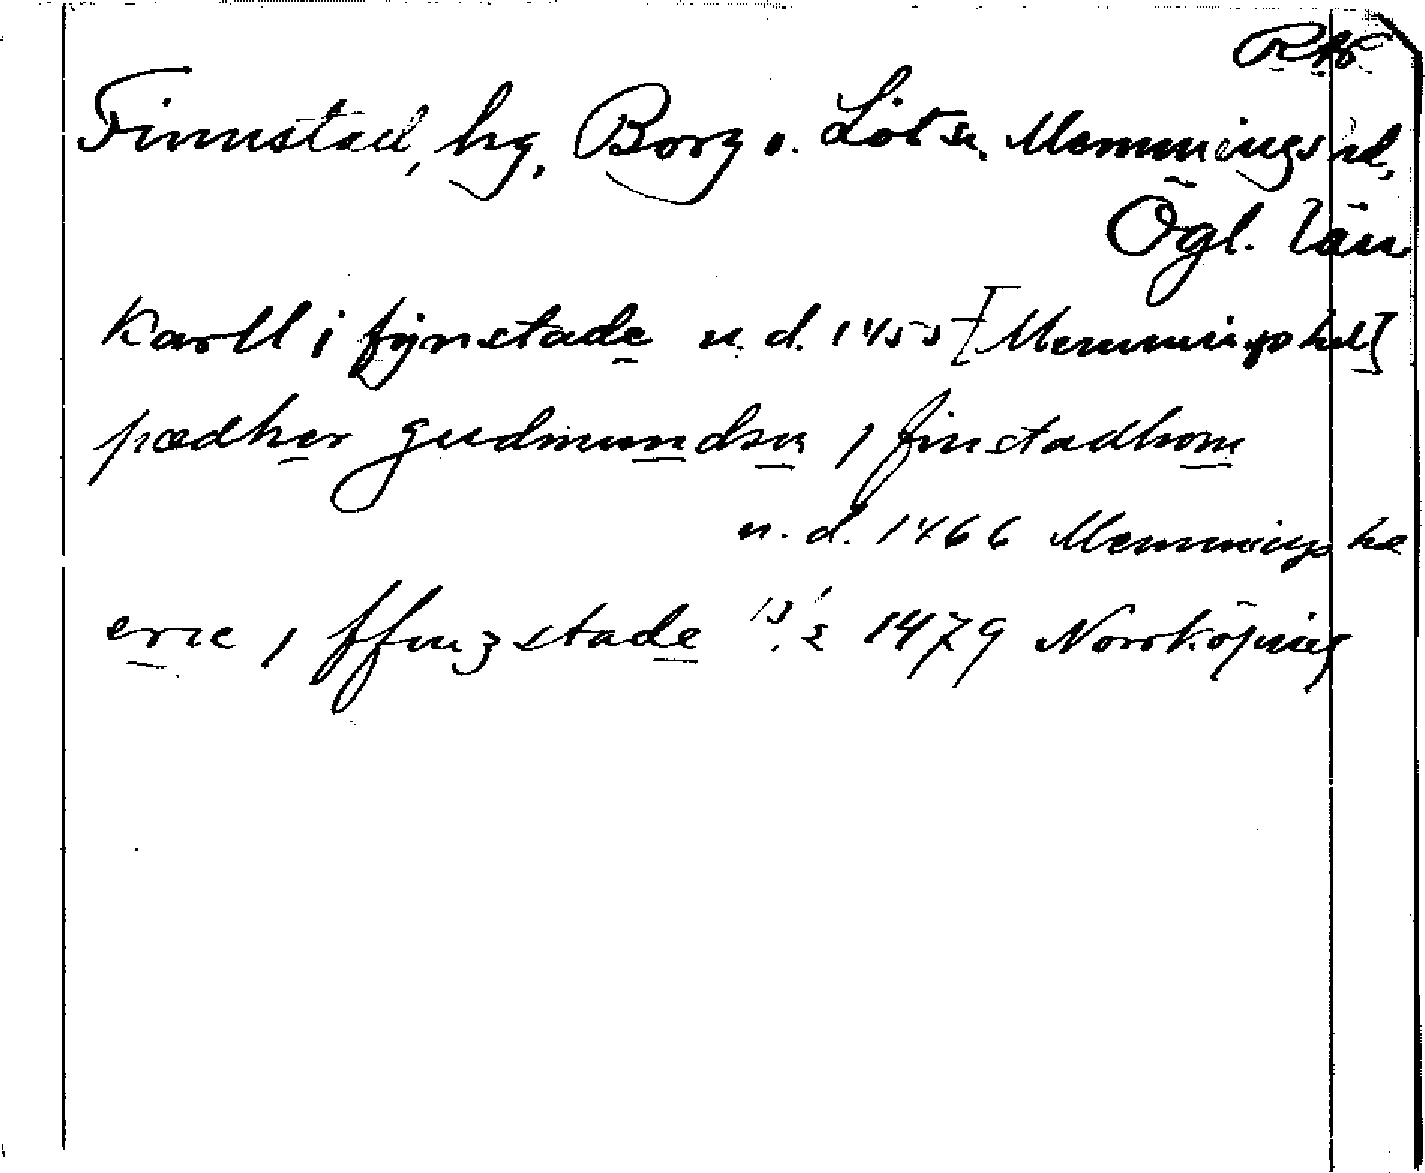 RAp
Finnstad, hg, Borg o. Löt sn. Memmings hd,
Ögl. län
karll i fijnstade u. d. 1455 [Memmings hd]
pædher gudmundsn j finstadhom
u. d. 1466 Memmings hd
eric j ffinzstade 13/2 1479 Norrköping